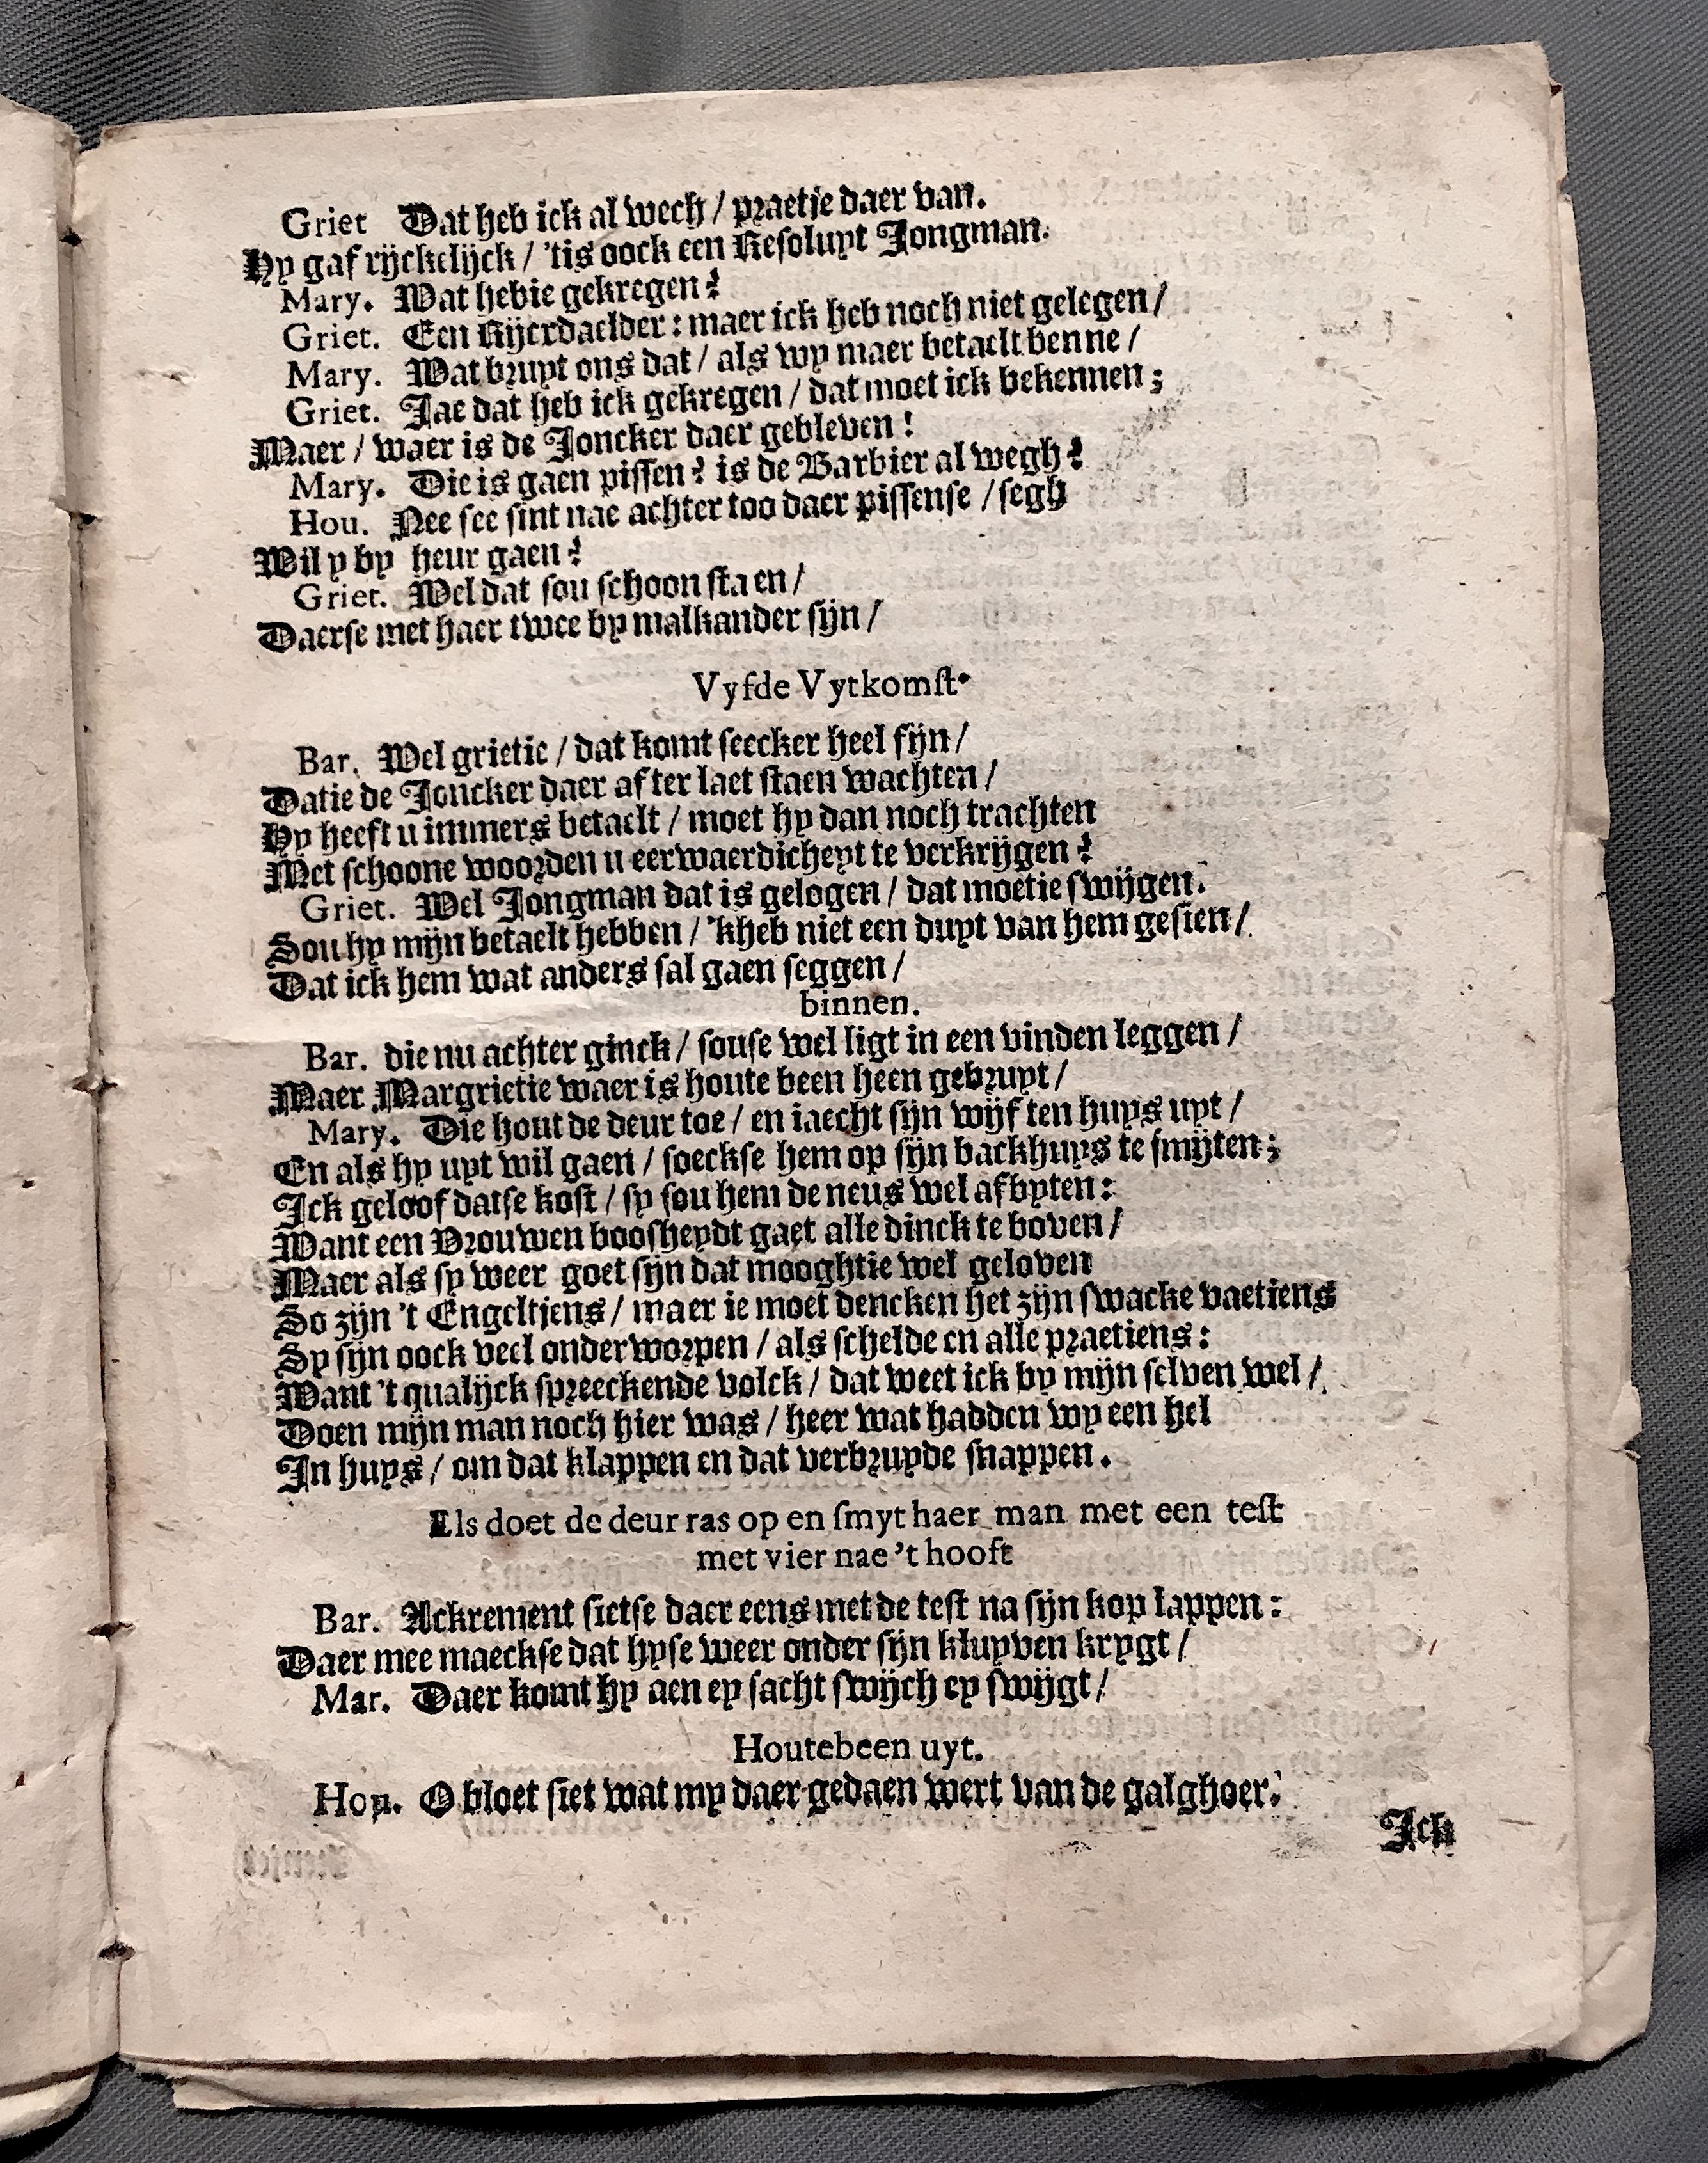 Griet Dat heb ick al wech / praetje daer van.
Hy gaf rijckelijck / 'tis oock een Resoluyt Jongman.
Mary. Wat hebie gekregen?
Griet. Een Rijcrdaelder : maer ick heb noch niet gelegen /
Mary. Wat bruyt ons dat / als wy maer betaelt benne /
Griet. Jae dat heb ick gekregen / dat moet ick bekennen ;
Maer / waer is de Joncker daer gebleven !
Mary. Die is gaen pissen ? is de Barbier al wegh ?
Hou. Nee see sint nae achter too daer pissense / segh
Wil y by heur gaen ?
Griet. Wel dat sou schoon staen /
Daerse met haer twee by malkander sijn /
Vyfde Vytkomst.
Bar. Wel grietie / dat komt seecker heel fijn /
Datie de Joncker daer after laet staen wachten /
Hy heeft u immers betaelt / moet hy dan noch trachten
Met schoone woorden u eerwaerdicheyt te verkrijgen ?
Griet. Wel Jongman dat is gelogen / dat moetie swijgen.
Sou hy mijn betaelt hebben / 'kheb niet een duyt van hem gesien /
Dat ick hem wat anders sal gaen seggen /
binnen.
Bar. die nu achter ginck / souse wel ligt in een vinden leggen /
Maer Margrietie waer is houte been heen gebruyt /
Mary. Die hout de deur toe / en iaecht sijn wijf ten huys uyt /
En als hy uyt wil gaen / soeckse hem op sijn backhuys te smijten ;
Ick geloof datse kost / sy sou hem de neus wel afbyten :
Want een Vrouwen boosheydt gaet alle dinck te boven /
Maer als sy weer goet sijn dat mooghtie wel geloven
So zijn 't Engeltjens / maer ie moet dencken het zijn swacke vaetiens
Sy sijn oock veel onderworpen / als schelde en alle praetiens :
Want 't qualijck spreeckende volck / dat weet ick by mijn selven wel /
Doen mijn man noch hier was / heer wat hadden wy een hel
In huys / om dat klappen en dat verbruyde snappen.
Els doet de deur ras op en smyt haer man met een test
met vier nae 't hooft
Bar. Ackrement sietse daer eens met de test na sijn kop lappen :
Daer mee maeckse dat hyse weer onder sijn kluyven krygt /
Mar. Daer komt hy aen ey sacht swijch ey swijgt /
Houtebeen uyt.
Hou. O bloet siet wat my daer gedaen wert van de galghoer.
Ick